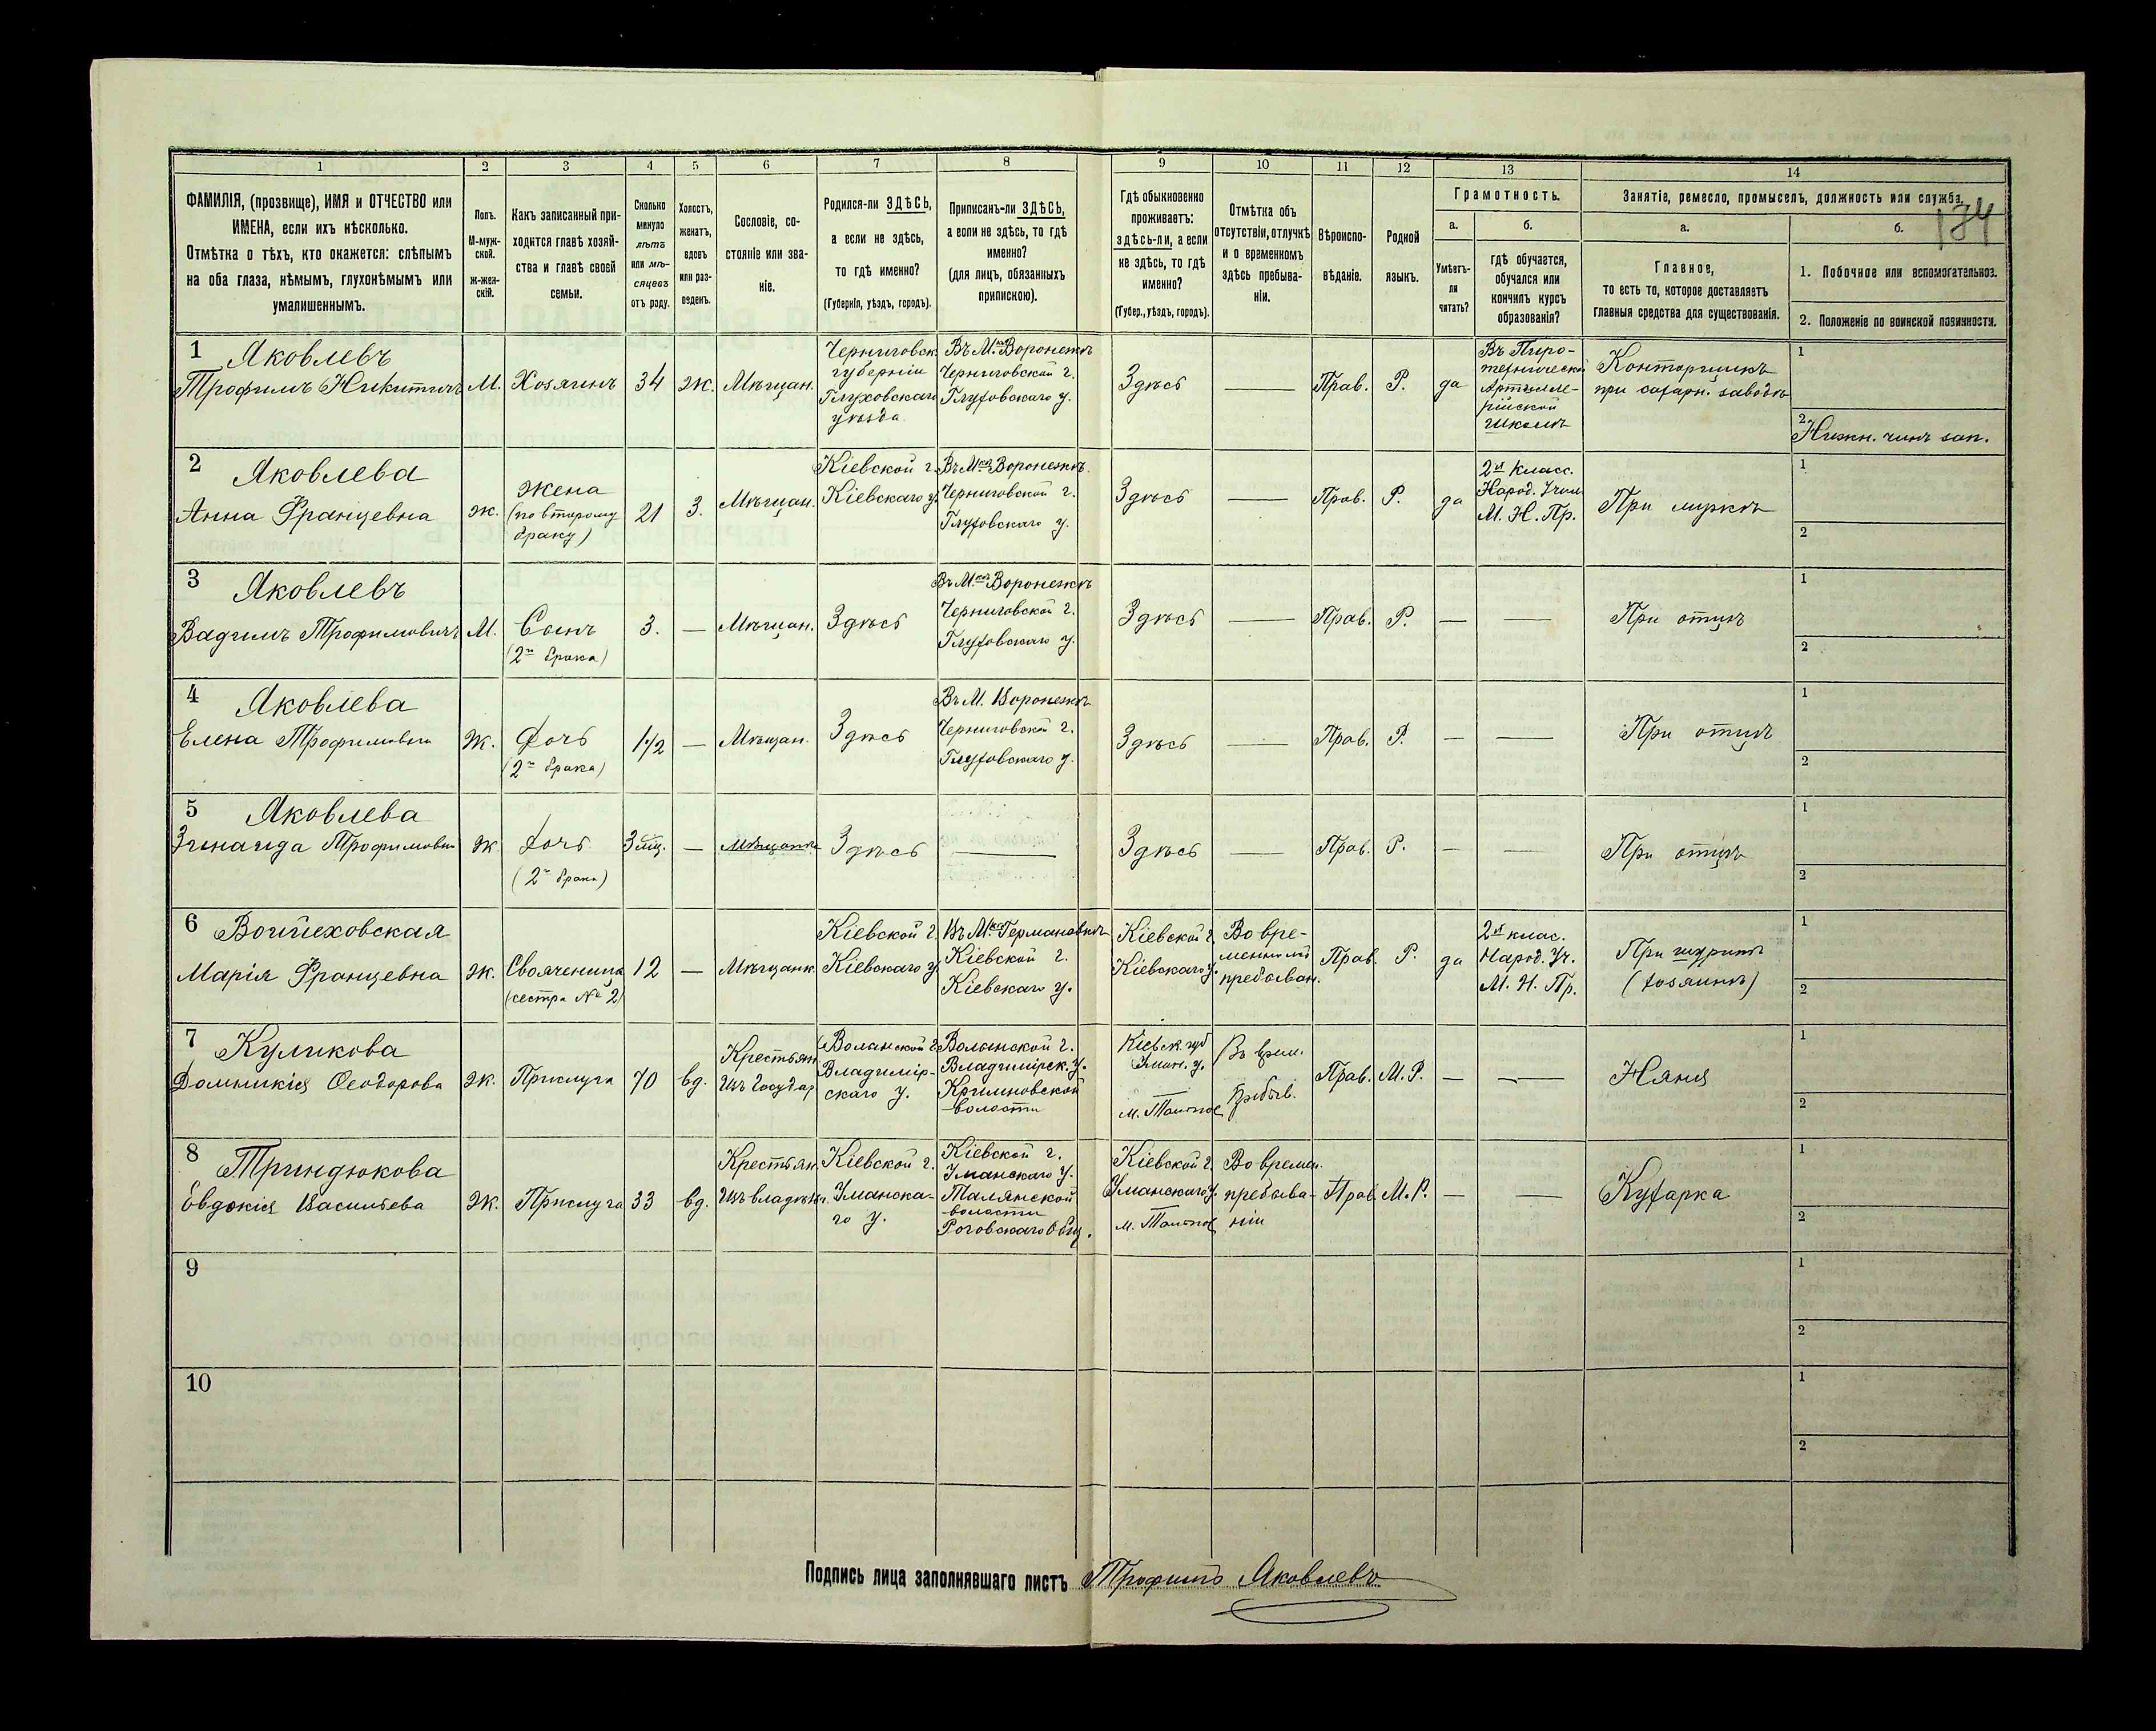 1 2 3 4 5 6 7 8 9 10 11 12 13 14
ФАМИЛІЯ, (прозвище), ИМЯ и ОТЧЕСТВО или
ИМЕНА, если ихъ нѣсколько.
Отмѣтка о тѣхъ, кто окажется: слѣпымъ
на оба глаза, нѣмымъ, глухонѣмымъ или
умалишеннымъ.
Полъ.
М-муж-
ской.
Ж-жен-
скій.
Какъ записанный при-
ходится главѣ хозяй-
ства и главѣ своей
семьи.
Сколько
минуло
лѣтъ
или мѣ-
сяцевъ
отъ роду.
Холостъ,
женатъ,
вдовъ
или раз-
веденъ.
Сословіе, со-
стояніе или зва-
ніе.
Родился-ли ЗДѢСЬ,
а если не здѣсь,
то гдѣ именно?
(Губернія, уѣздъ, городъ).
Приписанъ-ли ЗДѢСЬ,
а если не здѣсь, то гдѣ
именно?
(для лицъ, обязанныхъ
припискою).
Гдѣ обыкновенно
проживаетъ:
здѣсь-ли, а если
не здѣсь, то гдѣ
именно?
(Губер., уѣздъ, городъ).
Отмѣтка объ
отсутствіи, отлучкѣ
и о временномъ
здѣсь пребыва-
ніи.
Вѣроиспо-
вѣданіе.
Родной
языкъ.
Грамотность.
а.
Умѣетъ-
ли
читать?
б.
гдѣ обучается,
обучался или
кончилъ курсъ
образованія?
Занятіе, ремесло, промыселъ, должность или служба.
134
а.
Главное,
то есть то, которое доставляетъ
главныя средства для существованія.
б.
1. Побочное или вспомогательное.
2. Положеніе по воинской повинности.
1 Яковлевъ
Трофимъ Никитичъ
М.
Хозяинъ
34
ж.
Мѣщан.
Черниговск.
губерніи
Глуховскаго
уѣзда
Въ М.кѣ Воронежѣ
Черниговской г.
Глуховскаго у.
Здѣсь
Прав.
Р.
да
Въ Пиро-
техническо
Артилле-
рійской
школѣ
Конторщикъ
при сахарн. заводѣ
1
2
Нижн. чинъ зап.
2 Яковлева
Анна Францевна
ж.
жена
(по второму
браку)
21
З.
Мѣщан.
Кіевской г.
Кіевскаго у.
Въ М.кѣ Воронежѣ
Черниговской г.
Глуховскаго у.
Здѣсь
Прав.
Р.
да
2й класс.
Народ. Учил
М. Н. Пр.
При мужѣ
1
2
3 Яковлевъ
Вадимъ Трофимовичъ
М.
Сынъ
(2го брака)
3.
—
Мѣщан.
Здѣсь
Въ М.кѣ Воронежѣ
Черниговской г.
Глуховскаго у.
Здѣсь
Прав.
Р.
—
При отцѣ
1
2
4 Яковлева
Елена Трофимовна
Ж.
Дочь
(2го брака)
1 1/2
—
Мѣщан.
Здѣсь
Въ М. Воронежѣ
Черниговской г.
Глуховскаго у.
Здѣсь
Прав.
Р.
—
При отцѣ
1
2
5 Яковлева
Зинаида Трофимовн
ж
Дочь
(2го брака)
3 мц.
—
Мѣщанка
Здѣсь
Здѣсь
Прав.
Р.
—
При отцѣ
1
2
6 Войцеховская
Марія Францевна
ж.
Свояченица
(сестра № 2)
12
—
Мѣщанк.
Кіевской г.
Кіевскаго у.
Въ М.кѣ Германовкѣ
Кіевской г.
Кіевскаго у.
Кіевской г.
Кіевскаго у.
Во вре-
менномъ
пребыван.
Прав.
Р.
да
2й клас.
Народ. Уч.
М. Н. Пр.
При шуринѣ
(хозяинѣ)
1
2
7 Куликова
Домникія Ѳеодорова
ж.
Прислуга
70
вд.
Крестьян
Изъ Государ
Волынской г.
Владимір-
скаго у.
Волынской г.
Владимірск. у.
волости
Кіевск. губ
Уман. у.
м. Тальное
Въ врем.
пребыв.
Прав.
М. Р.
—
Няня
1
2
8 Триндюкова
Евдокія Васильева
Ж.
Прислуга
33
вд.
Крестьян.
Изъ владѣл.
Кіевской г.
Уманска-
го у.
Кіевской г.
Уманскаго у.
Талянской
волости
Роговскаго Общ.
Кіевской г.
Уманскаго у.
м. Тальное
Во времен.
пребыва-
ніи
Прав.
М. Р.
—
Кухарка
1
2
9
1
2
10
1
2
Подпись лица заполнявшаго листъ Трофимъ Яковлевъ